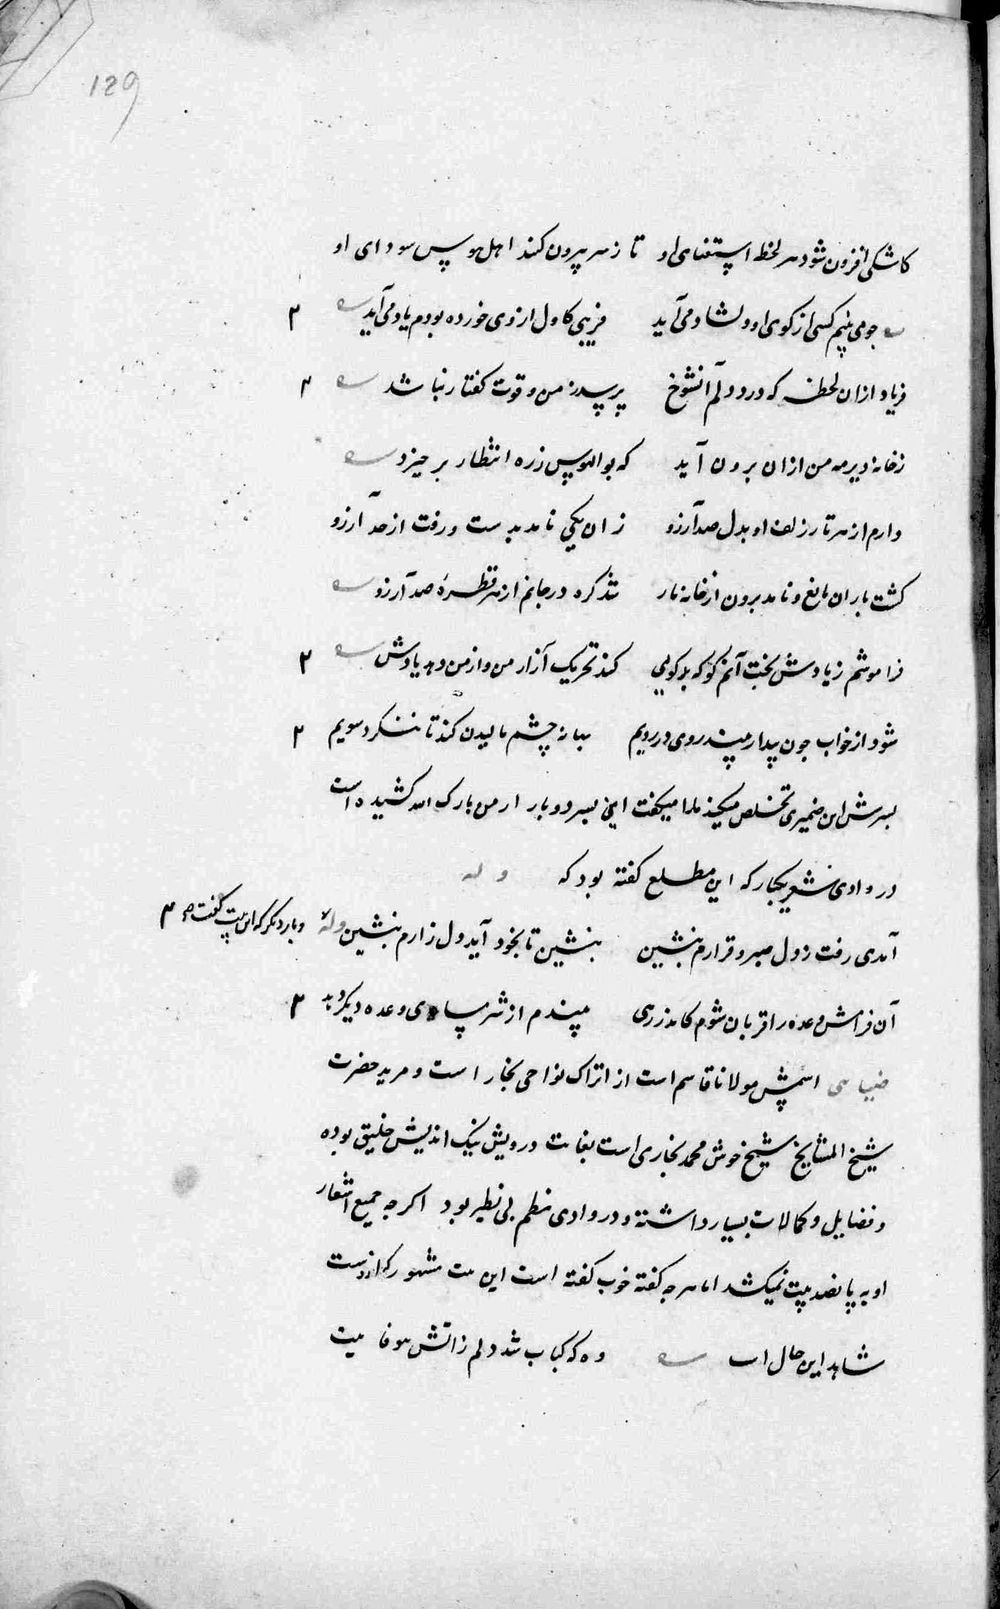 129
کاشکی افزون شود هر لحظه استغنای او تا ز سر بیرون کند اهل هوس سودای او
چو می بینم کسی از کوی او دلشاد می آید فریبی کاول از وی خورده بودم یاد می آید ۲
فریاد ازان لحظه که درد دلم آن شوخ پرسد ز من و قوت گفتار نباشد ۲
ز خانه دیر مه من ازان برون آید که بوالهوس ز ره انتظار برخیزد
دارم از هر تار زلف او بدل صد آرزو زان یکی نامد بدست و رفت از حد آرزو
گشت باران مانع و نامد برون از خانه یار شد گره در جانم از هر قطرهٔ صد آرزو
فراموشم ز یادش بخت آنم کو که بدگویی کند تحریک آزار من و از من دهد یادش ۲
شود از خواب چون بیدار بیند روی در رویم بهانه چشم مالیدن کند تا ننگرد سویم ۲
پسرش این ضمیری تخلص میکند ملا میگفت این پسر دو بار از من بارک الله کشیده است
در وادی شعر یکبار که این مطلع گفته بود که وله
آمدی رفت ز دل صبر و قرارم بنشین بنشین تا بخود آید دل زارم بنشین وله و بار دیگر که این بیت گفت ۳
آن فراموش وعده را قربان شوم کامد ز رهی بیندم از شرمساری وعدهٔ دیگر دهد ۲
ضیایی اسمش مولانا قاسم است از اتراک نواحی بخارا است و مرید حضرت
شیخ المشایخ شیخ خوش محمد بخاری است بغایت درویش نیک اندیش خلیق بوده
و فضایل و کمالات بسیار داشته و در وادی نظم بی نظیر بود اگرچه جمیع اشعار
او به پانصد بیت نمیکشد اما هرچه گفته خوب گفته است این بیت مشهور که ازوست
شاهد این حال است وه که کباب شد دلم ز آتش بیت